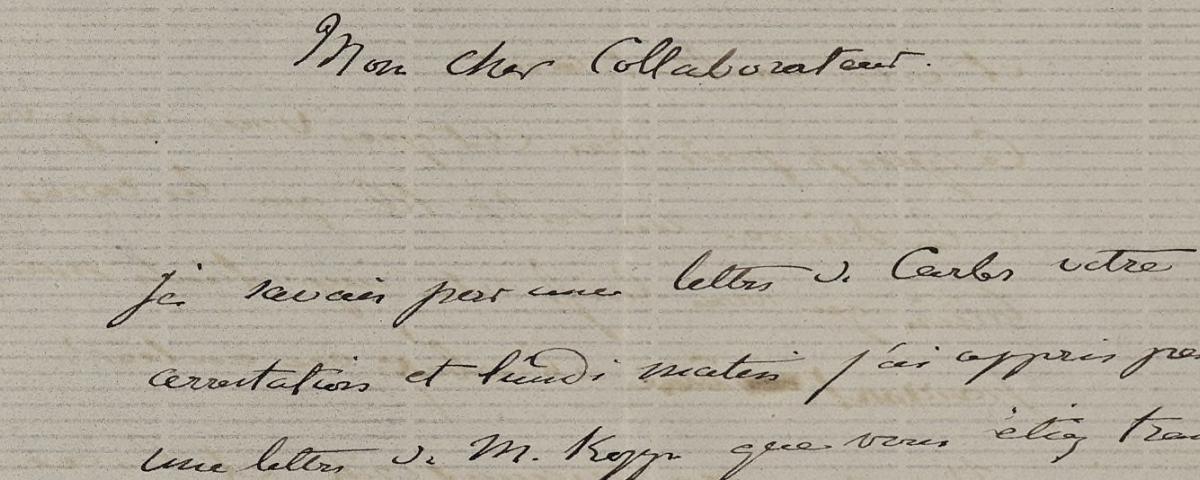 Mon cher Collaborateur.
Je savais par une lettre de Carlos votre
arrestation et lundi matin j'ai appris par
une lettre de M. Kopp que vous étiez